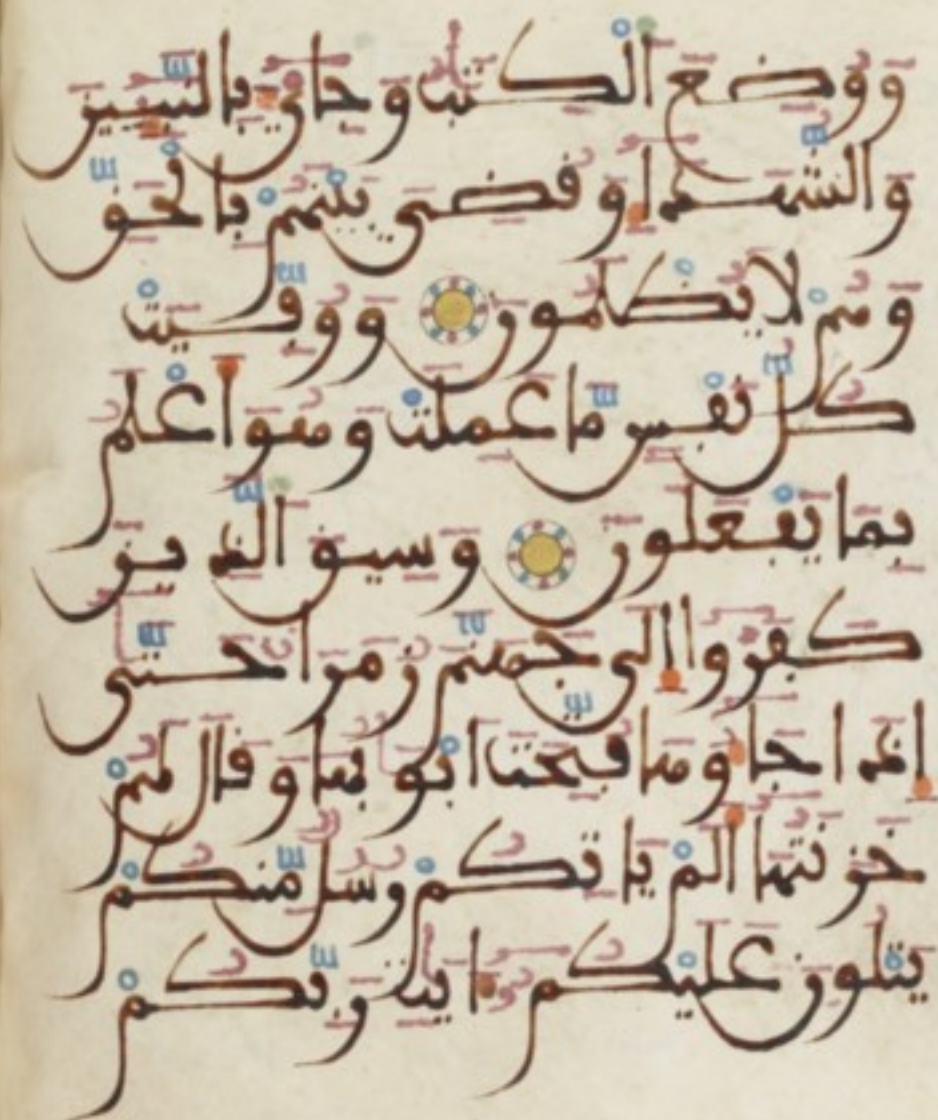 وَوُضِعَ الْكِتَٰبُ وَجِاْيٓءَ بِالنَّبِيِّـۧنَ
وَالشُّهَدَآءِ وَقُضِيَ بَيْنَهُمْ بِالْحَقِّ
وَهُمْ لَا يُظْلَمُونَ وَوُفِّيَتْ
كُلُّ نَفْسٍ مَّا عَمِلَتْ وَهُوَ أَعْلَمُ
بِمَا يَفْعَلُونَ وَسِيقَ الَّذِينَ
كَفَرُوٓا إِلَىٰ جَهَنَّمَ زُمَرًا حَتَّىٰٓ
إِذَا جَآءُوهَا فُتِّحَتْ أَبْوَٰبُهَا وَقَالَ لَهُمْ
خَزَنَتُهَآ أَلَمْ يَأْتِكُمْ رُسُلٌ مِّنكُمْ
يَتْلُونَ عَلَيْكُمُۥٓ ءَايَٰتِ رَبِّكُمْ